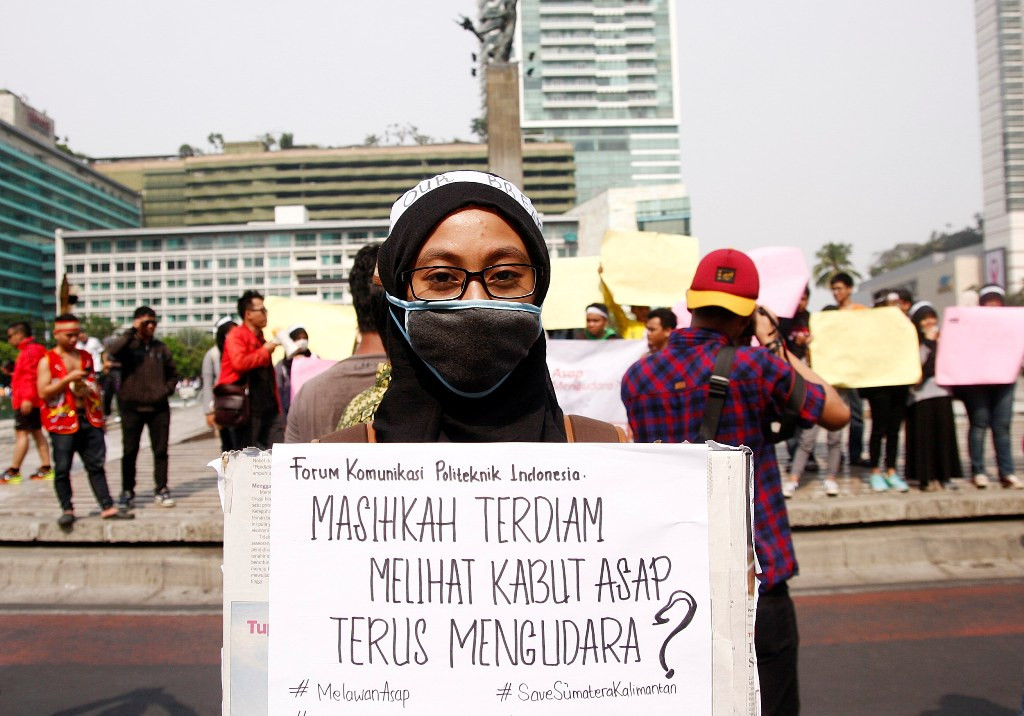 OUR BRE
Forum Komunikasi Politeknik Indonesia.
MASIHKAH TERDIAM
MELIHAT KABUT ASAP
TERUS MENGUDARA?
# MelawanAsap
# SaveSumateraKalimantan
Asap
Mengudara
Tup